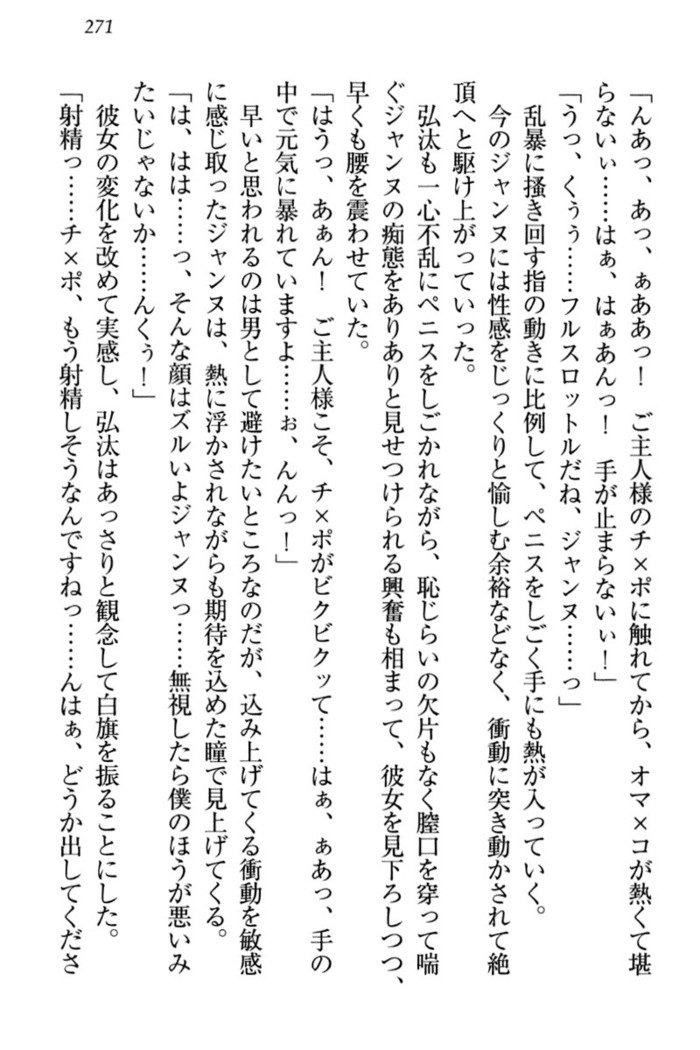 271
「んあっ、あっ、ぁああっ！　ご主人様のチ×ポに触れてから、オマ×コが熱くて堪
らないぃ……はぁ、はぁあんっ！　手が止まらないぃ！」
「うっ、くぅぅ……フルスロットルだね、ジャンヌ……っ」
乱暴に掻き回す指の動きに比例して、ペニスをしごく手にも熱が入っていく。
今のジャンヌには性感をじっくりと愉しむ余裕などなく、衝動に突き動かされて絶
頂へと駆け上がっていった。
弘汰も一心不乱にペニスをしごかれながら、恥じらいの欠片もなく膣口を穿って喘
ぐジャンヌの痴態をありありと見せつけられる興奮も相まって、彼女を見下ろしつつ、
早くも腰を震わせていた。
「はうっ、あぁん！　ご主人様こそ、チ×ポがビクビクッて……はぁ、ぁあっ、手の
中で元気に暴れていますよ……ぉ、んんっ！」
早いと思われるのは男として避けたいところなのだが、込み上げてくる衝動を敏感
に感じ取ったジャンヌは、熱に浮かされながらも期待を込めた瞳で見上げてくる。
「は、はは……っ、そんな顔はズルいよジャンヌっ……無視したら僕のほうが悪いみ
たいじゃないか……んくぅ！」
彼女の変化を改めて実感し、弘汰はあっさりと観念して白旗を振ることにした。
「射精っ……チ×ポ、もう射精しそうなんですねっ……んはぁ、どうか出してくださ